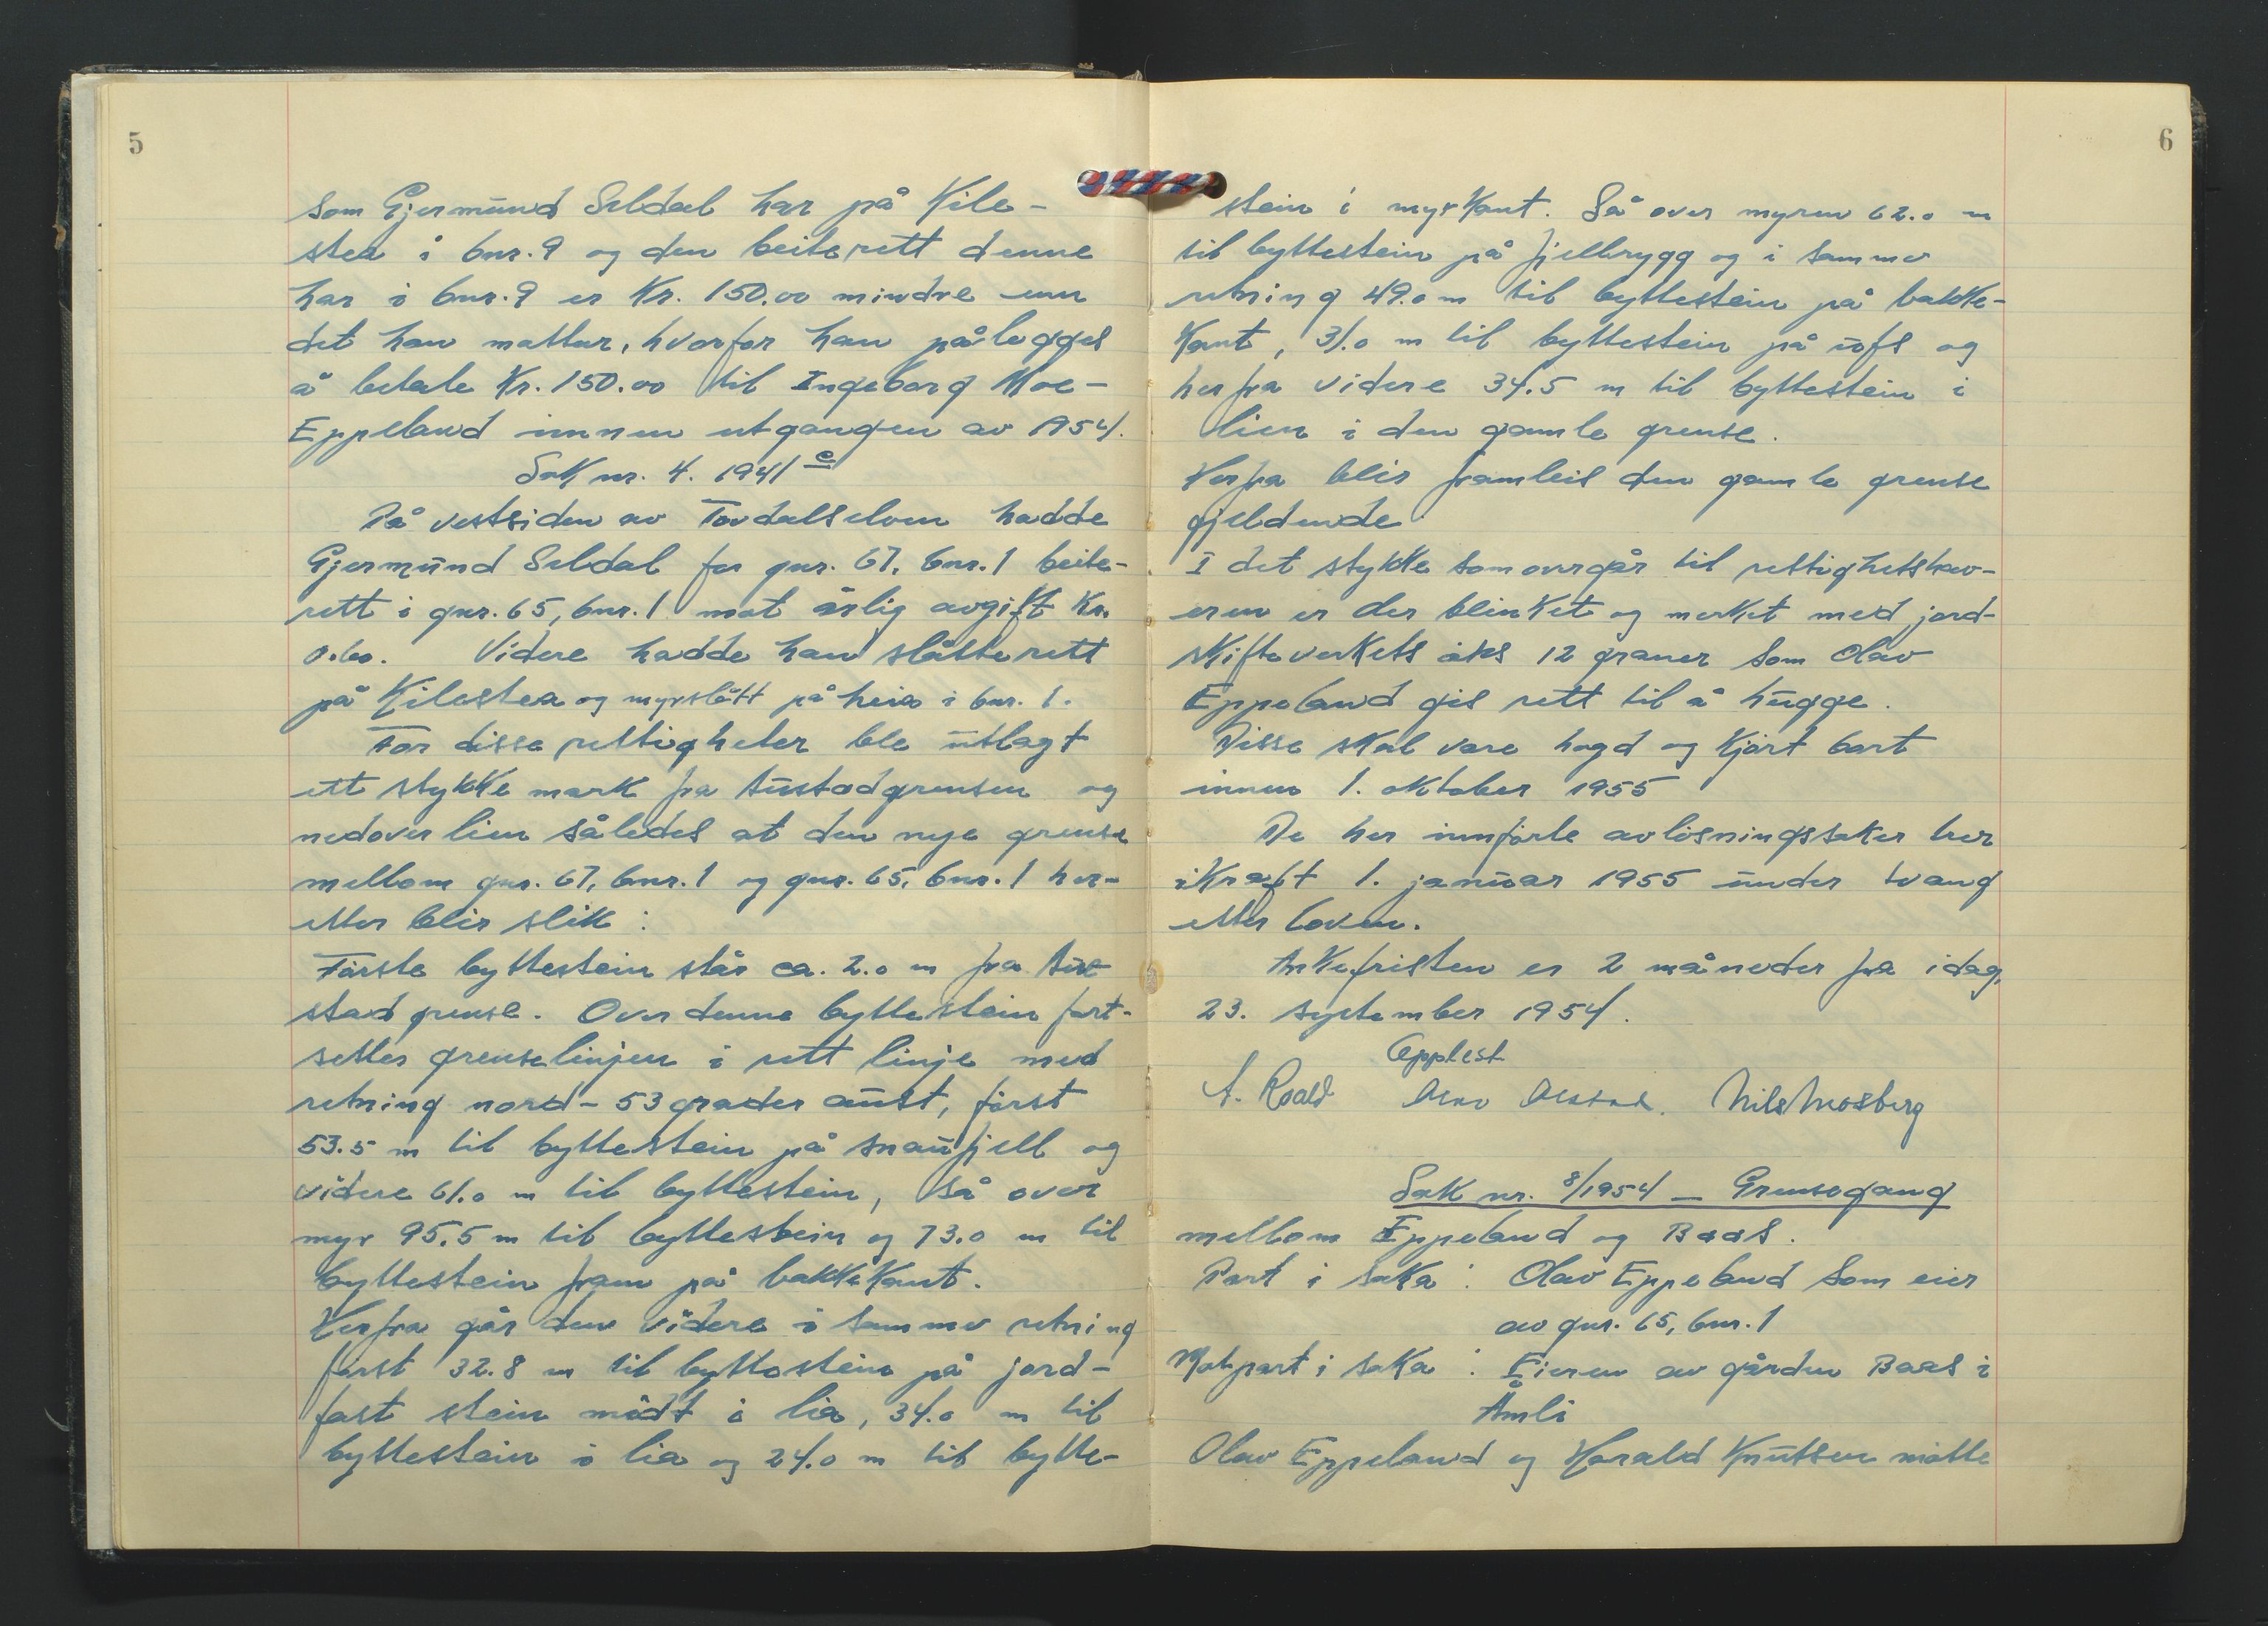 5
som Gjermund Seldal har på Kile-
stea i bnr. 9 og den beiterett denne
har i bnr. 9 er Kr. 150.00 mindre enn
det han mottar, hvorfor han pålegges
å betale Kr. 150.00 til Ingeborg Moe-
Eppeland innen utgangen av 1954.
Sak nr. 4. 1941 e
På vestsiden av Tovdalselven hadde
Gjermund Seldal for gnr. 67, bnr. 1 beite-
rett i gnr. 65, bnr. 1 mot årlig avgift Kr.
0.60. Videre hadde han slåtterett
på Kilestea og myrslått på heia i bnr. 1.
For disse rettigheter ble utlagt
ett stykke mark fra Tustadgrensen og
nedover lien således at den nye grense
mellom gnr. 67, bnr. 1 og gnr. 65, bnr. 1 her-
etter blir slik :
Første byttestein står ca. 2.0 m fra Tu-
stad grense. Over denne byttestein fort-
setter grenselinjen i rett linje med
retning nord - 53 grader aust, först
53.5 m til byttestein på snaufjell og
videre 61.0 m til byttestein, så over
myr 95.5 m til byttestein og 73.0 m til
byttestein fram på bakkekant.
Herfra går den videre i samme retning
först 32.8 m til byttestein på jord-
fast stein midt i lia, 34.0 m til
byttestein i lia og 24.0 m til bytte-
6
stein i myrkant. Så over myren 62.0 m
til byttestein på fjellrygg og i samme
retning 49.0 m til byttestein på bakke-
kant, 31.0 m til byttestein på ufs og
herfra videre 34.5 m til byttestein i
lien i den gamle grense.
Herfra blir framleis den gamle grense
gjeldende.
I det stykke som overgår til rettighetshav-
eren er der blinket og merket med jord-
skifteverkets øks 12 graner som Olav
Eppeland gis rett til å hugge.
Disse skal være hogd og kjört bort
innen 1. oktober 1955
De her innførte avløsningssaker trer
ikraft 1. januar 1955 under tvang
etter loven.
Ankefristen er 2 måneder fra idag,
23. september 1954.
Opplest
A. Roald Nils Mosberg
Sak nr. 8/1954 — Grensegang
mellom Eppeland og Baas.
Part i saka : Olav Eppeland som eier
av gnr. 65, bnr. 1
Motpart i saka : Eieren av gården Baas i
Åmli
Olav Eppeland og Harald Knutsen møtte